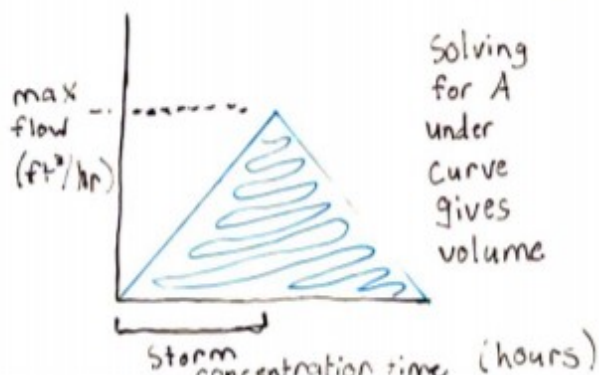 max
flow
(ft³/hr)
Solving
for A
under
curve
gives
volume
storm
concentration time (hours)